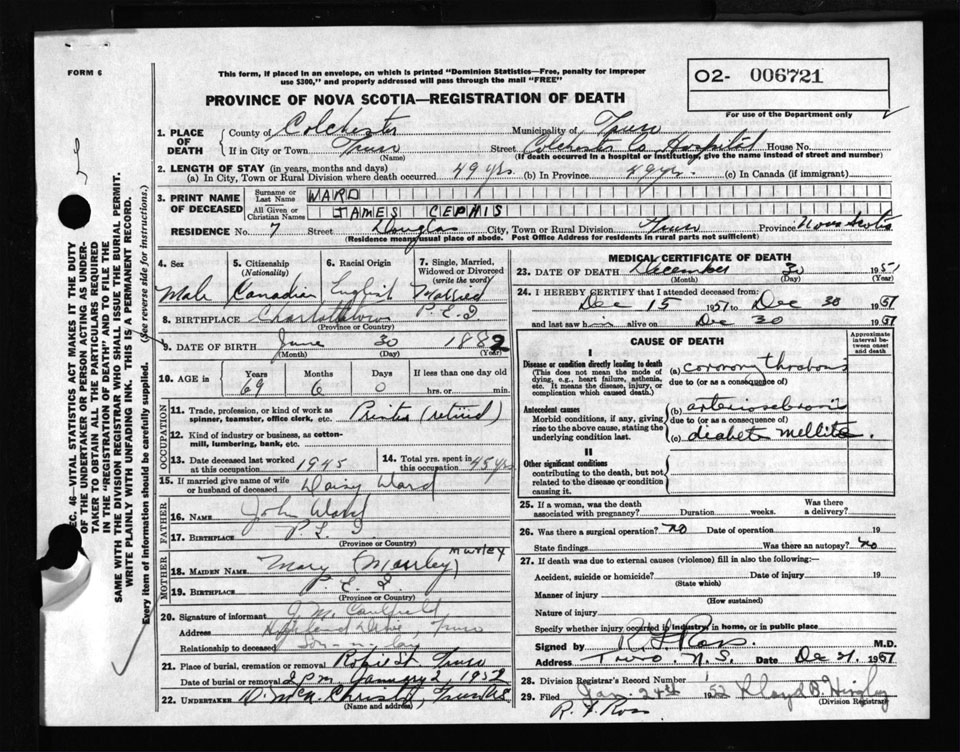 FORM 6
This form, if placed in an envelope, on which is printed "Dominion Statistics—Free, penalty for improper
use $300," and properly addressed will pass through the mail "FREE"
O2- 006721
For use of the Department only
PROVINCE OF NOVA SCOTIA—REGISTRATION OF DEATH
SEC. 46—VITAL STATISTICS ACT MAKES IT THE DUTY
OF THE UNDERTAKER OR PERSON ACTING AS UNDER-
TAKER TO OBTAIN ALL THE PARTICULARS REQUIRED
IN THE "REGISTRATION OF DEATH" AND TO FILE THE
SAME WITH THE DIVISION REGISTRAR WHO SHALL ISSUE THE BURIAL PERMIT.
WRITE PLAINLY WITH UNFADING INK. THIS IS A PERMANENT RECORD.
Every item of information should be carefully supplied. (See reverse side for instructions.)
1. PLACE OF DEATH County of Colchester Municipality of Truro
If in City or Town Truro Street Colchester Co. Hospital House No.
(Name) (If death occurred in a hospital or institution, give the name instead of street and number)
2. LENGTH OF STAY (in years, months and days)
(a) In City, Town or Rural Division where death occurred 49 yrs. (b) In Province 49 yrs. (c) In Canada (if immigrant)
3. PRINT NAME OF DECEASED Surname or Last Name WARD
All Given or Christian Names JAMES CEPHIS
RESIDENCE No. 7 Street Douglas City, Town or Rural Division Truro Province Nova Scotia
(Residence means usual place of abode. Post Office Address for residents in rural parts not sufficient)
4. Sex Male
5. Citizenship (Nationality) Canadian
6. Racial Origin English
7. Single, Married, Widowed or Divorced (write the word) Married
8. BIRTHPLACE Charlottetown P.E.I
(Province or Country)
9. DATE OF BIRTH June 30 1882
(Month) (Day) (Year)
10. AGE in Years 69 Months 6 Days 0 If less than one day old hrs. or min.
OCCUPATION
11. Trade, profession, or kind of work as spinner, teamster, office clerk, etc. Printer (retired)
12. Kind of industry or business, as cotton-mill, lumbering, bank, etc.
13. Date deceased last worked at this occupation 1945
14. Total yrs. spent in this occupation 45 yrs.
15. If married give name of wife or husband of deceased Daisy Ward
FATHER
16. NAME John Ward
17. BIRTHPLACE
(Province or Country)
MOTHER
18. MAIDEN NAME Mary
19. BIRTHPLACE P. E. I
(Province or Country)
20. Signature of informant J. M. Caulfield
Address Highland Drive, Truro
Relationship to deceased Son-in-law
21. Place of burial, cremation or removal Robie St. Truro
Date of burial or removal 2 p.m. January 2, 1952
22. UNDERTAKER Truro N.S.
(Name and address)
MEDICAL CERTIFICATE OF DEATH
23. DATE OF DEATH December 30 1951
(Month) (Day)
24. I HEREBY CERTIFY that I attended deceased from:
Dec 15 1951 to Dec 30 1951
and last saw him alive on Dec 30 1951
CAUSE OF DEATH
Approximate interval between onset and death
I
Disease or condition directly leading to death
(This does not mean the mode of dying, e.g., heart failure, asthenia, etc. It means the disease, injury, or complication which caused death.)
(a) coronary thrombosis
due to (or as a consequence of)
Antecedent causes
Morbid conditions, if any, giving rise to the above cause, stating the underlying condition last.
(b) arteriosclerosis
due to (or as a consequence of)
(c) diabetes mellitus.
II
Other significant conditions
contributing to the death, but not related to the disease or condition causing it.
25. If a woman, was the death associated with pregnancy? Duration weeks. Was there a delivery?
26. Was there a surgical operation? no Date of operation 19
State findings Was there an autopsy? no
27. If death was due to external causes (violence) fill in also the following:—
Accident, suicide or homicide? Date of injury 19
(State which)
Manner of injury
(How sustained)
Nature of injury
Specify whether injury occurred in industry, in home, or in public place
Signed by R. F. Ross M.D.
Address Truro. N.S. Date Dec 31. 1951
28. Division Registrar's Record Number
29. Filed Jan. 24th 1952 Lloyd B. Hingley
(Division Registrar)
R. F. Ross